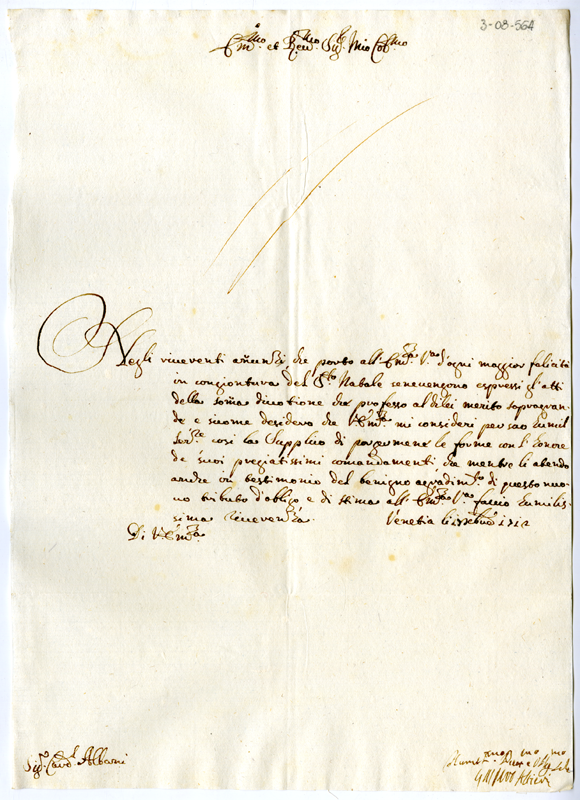 3-08-564
Em.mo et Rev.mo Sig.r Mio Col.mo
Negli riverenti añunzi che porto all'Em.za V.ra d'ogni maggior felicità
in congiontura del S.to Natale convengono espressi gli atti
della soma divotione che professo al di lei merito sopragran
de e sicome desidero che V. Em.za mi consideri per suo humil
Ser.re così la Supplico di porgermene le forme con l'honore
de suoi pregiatissimi comandamenti che mentre li attendo
anche in testimonio del benigno agradim.to di questo nuo
vo tributo d'obligo e di stima all'Em.za V.ra faccio humilis
sima riverenza. Venetia li Xbre 1712
Di V. Em.za
Sig.r Card.l Albani
Humil.mo Dev.mo